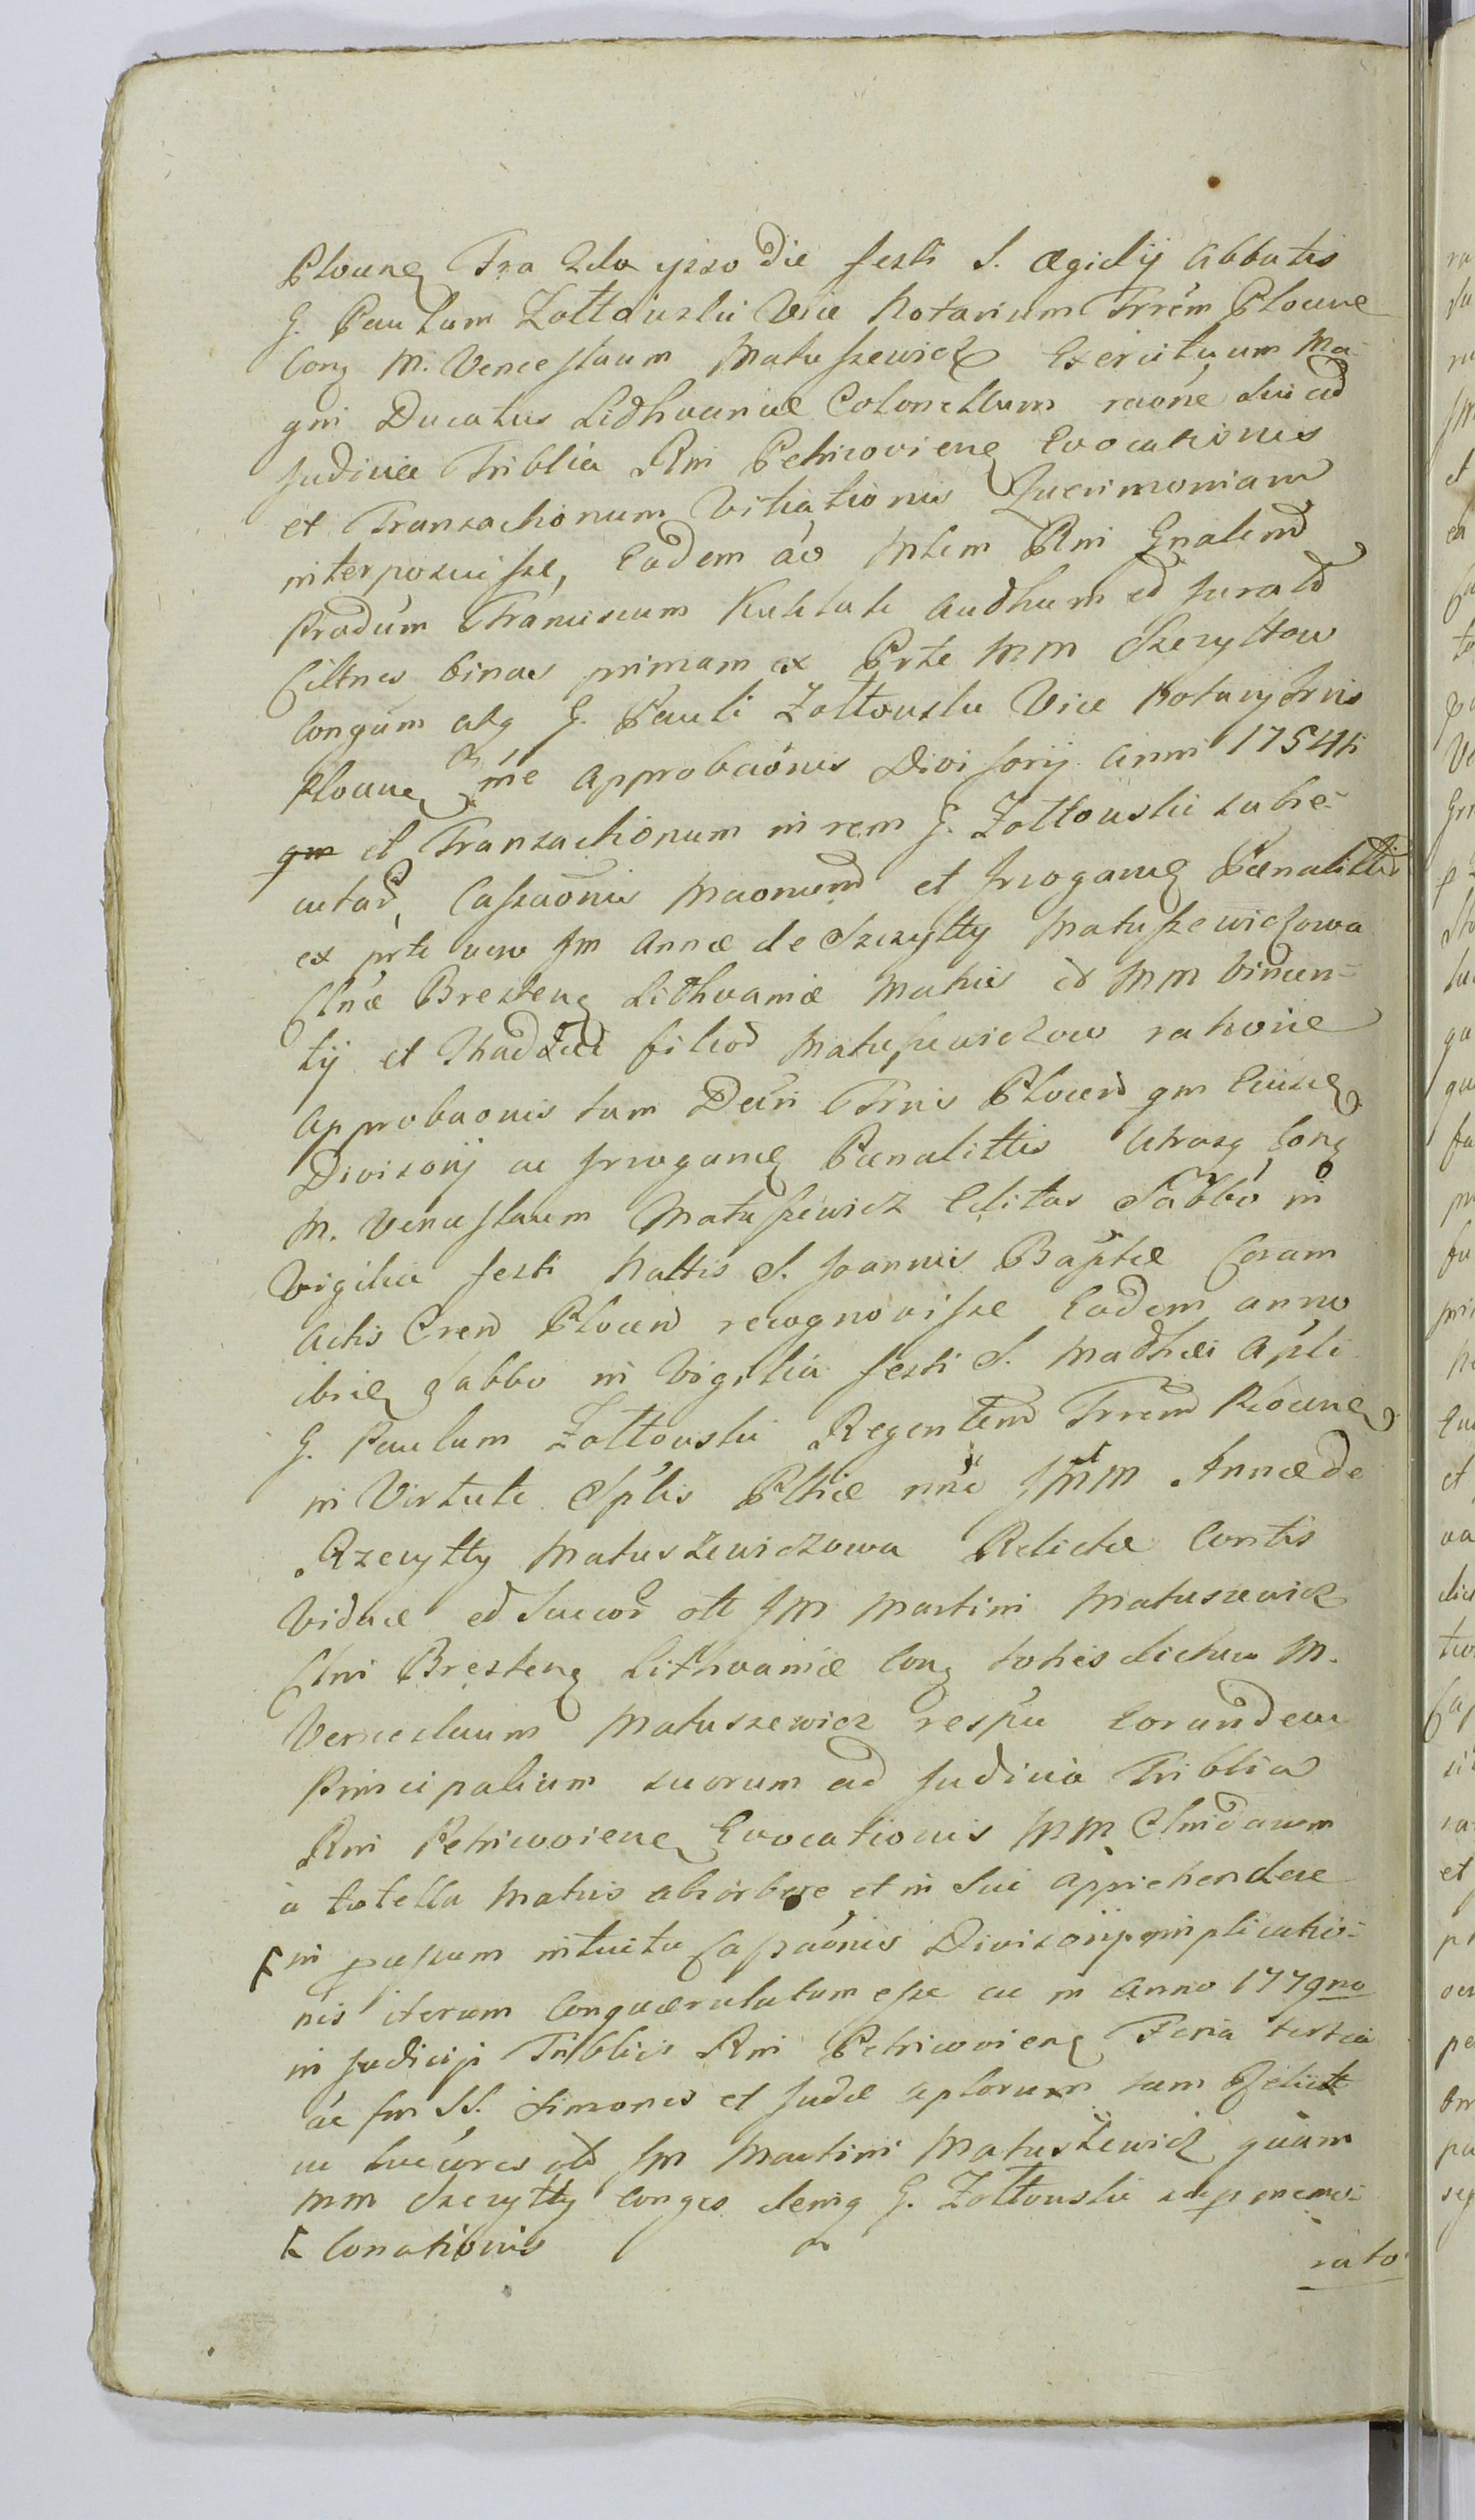 Plocens Fra 2da ipso die festi S. Ægidij Abbatis
G. Paulum Zołtowski Vice Notarium Trrem Plocens
Cong M. Venceslaum Matuszewicz Exercituum Ma-
gni Ducatus Lidhvaniæ Colonellum raōne Sui ad
Judicia Triblia Rni Petricoviens Evocationis
et Transactionum Vitiationis Querimoniam
interposuisse, Eadem ao Mlem Rni Gnalem
Pradum Franciscum Kuklati audhum ed Jurald
Cilltnes binas primam ex Prte MM Szczyttow
Congum atq G. Pauli Zołtowski Vice Notarij Trris
Plocens me Approbaonis Divisorij Anni 1754ti
et Transactionum in rem G. Zołtowski subse-
cutad, Cassaonis maonum et Irrogane Pœnalittis
ex prte vero Jm Annæ de Szczytty Matuszewiczowa
Clnæ Brestens Lithvaniæ Matris ed MM Vincen-
tij et Thadæi filiod Matuszewiczow ratione
Approbaonis tam Decri Trris Plocen qm Eiusq
Divisorij ac Irrogane Pœnalittis Utrasq Cong
M. Venceslaum Matuszewicz Editas Sabbo in
Vigilia festi Nattis S. Joannis Baptæ Coram
Actis Cren Plocen recognovisse Eadem anno
ibiq Sabbo in Vigilia festi S. Madhæi Apli
G. Paulum Zołtowski Regentem Trrem Plocens
in Virtute Splis Plttiæ nne JMM Annæ de
Rzczytty Matuszewiczowa Relictæ Contis
Viduæ ed Succor olt JM Martini Matuszewicz
Clni Brestens Lithvaniæ Cong toties dictum M.
Venceslaum Matuszewicz respu Eorundem
Principalium suorum ad Judicia Triblia
Rni Petricoviens Evocationis MM Clnidarum
a tutella Matris absorbere et in Sui apprehendere
in passum intuitu Cassaonis Divisorij implicatio-
nis iterum Conquærulatum esse ac in Anno 1779no
in Judicijs Triblis Rni Petricoviens Feria tertia
ac fm SS. Simonis et Judæ aplorum tam Relict
ac Succres old Jm Martini Matuszewicz quam
MM Szczytty Conges deniq G. Zołtowski supramemo-
Conationis
rato